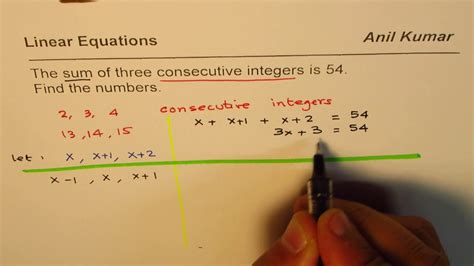 Linear Equations Anil Kumar
The sum of three consecutive integers is 54.
Find the numbers.
consecutive integers
2, 3, 4
13, 14, 15
let : x, x+1, x+2
x-1, x, x+1
x + x+1 + x+2 = 54
3x + 3 = 54